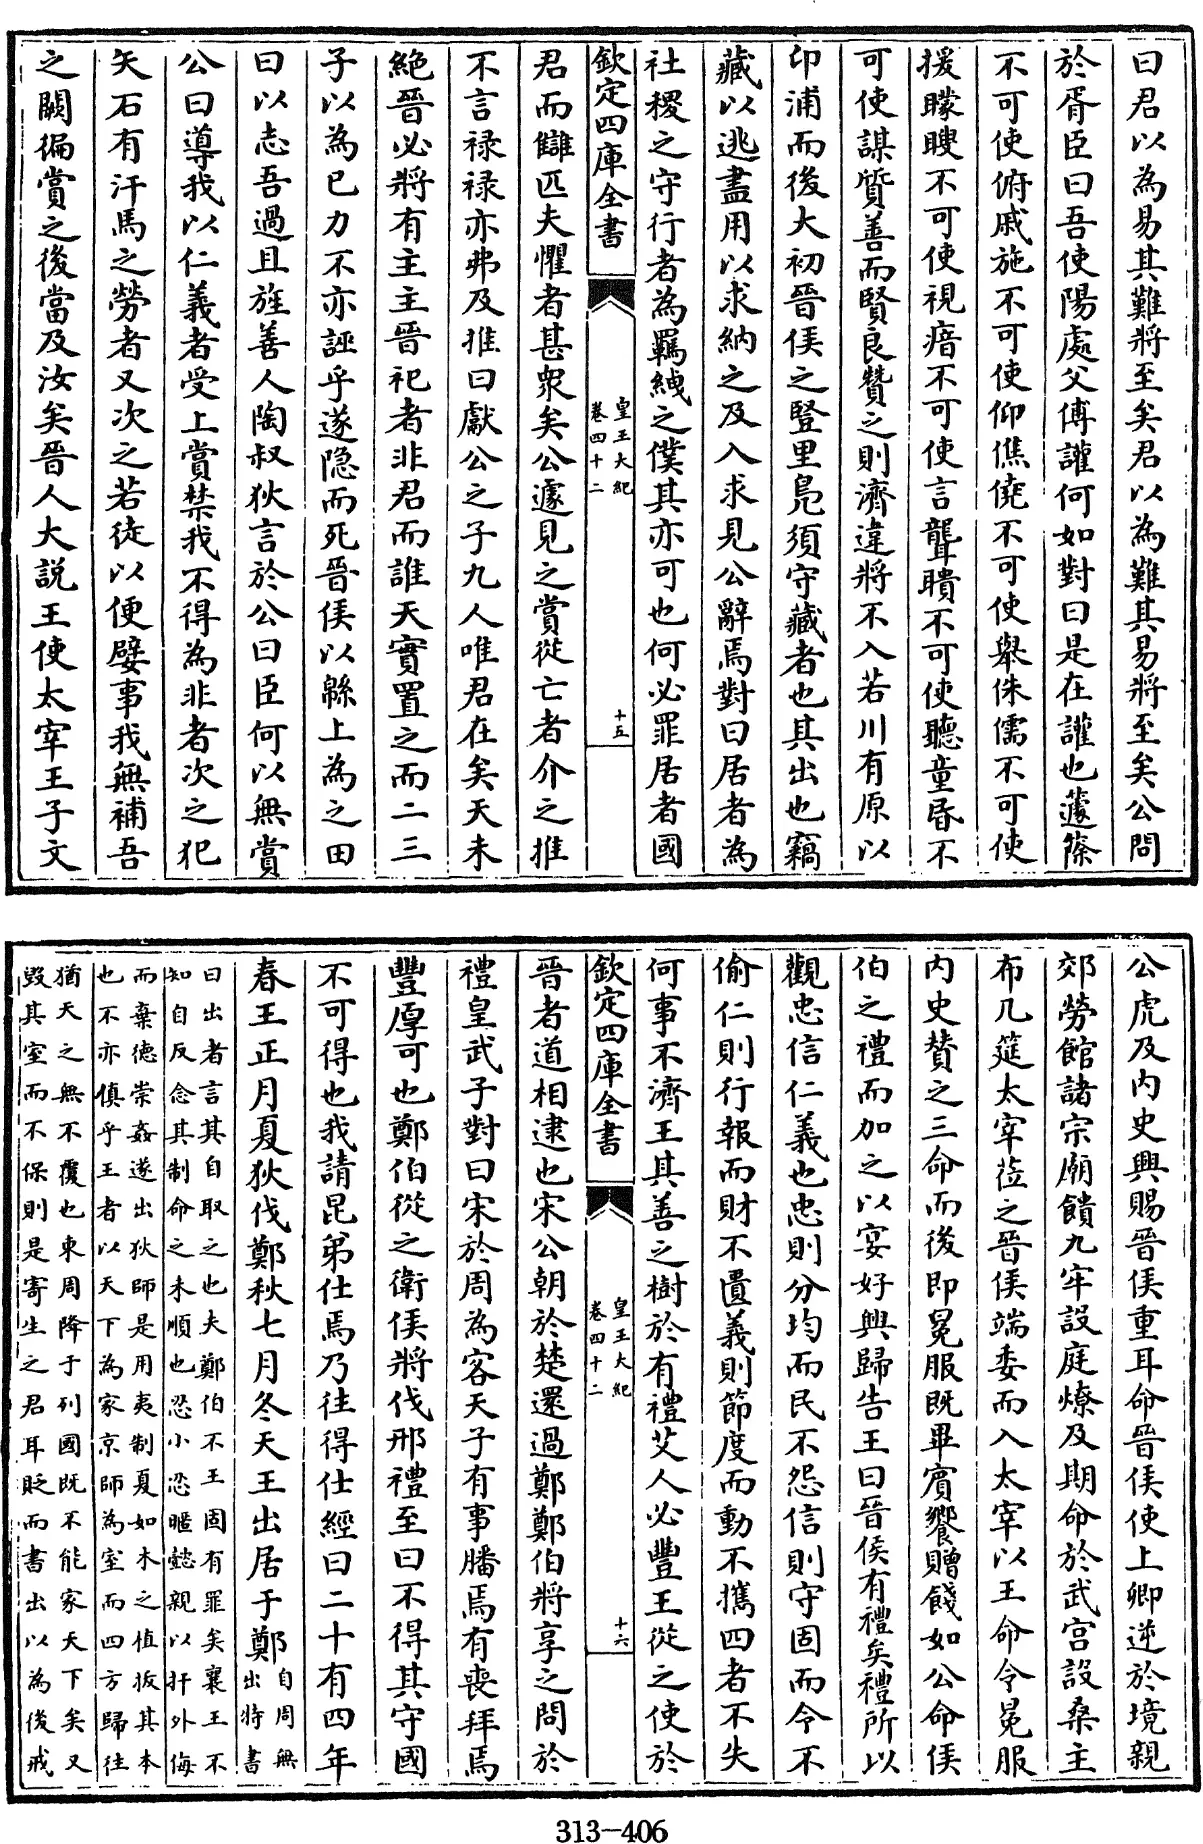 曰君以為易其難將至矣君以為難其易將至矣公問
於胥臣曰吾使陽處父傅讙何如對曰是在讙也蘧篨
不可使俯戚施不可使仰僬僥不可使舉侏儒不可使
援矇瞍不可使視瘖不可使言聾聵不可使聽童昏不
可使謀質善而賢良贊之則濟違將不入若川有原以
卬浦而後大初晉侯之豎里鳧須守藏者也其出也竊
藏以逃盡用以求納之及入求見公辭焉對曰居者為
社稷之守行者為羈絏之僕其亦可也何必罪居者國
欽定四庫全書
皇王大紀
卷四十二
十五
君而讎匹夫懼者甚衆矣公遽見之賞從亡者介之推
不言禄禄亦弗及推曰獻公之子九人唯君在矣天未
絶晉必將有主主晉祀者非君而誰天實置之而二三
子以為己力不亦誣乎遂隠而死晉侯以緜上為之田
曰以志吾過且旌善人陶叔狄言於公曰臣何以無賞
公曰導我以仁義者受上賞禁我不得為非者次之犯
矢石有汗馬之勞者又次之若徒以便嬖事我無補吾
之闕徧賞之後當及汝矣晉人大説王使太宰王子文
公虎及内史興賜晉侯重耳命晉侯使上卿逆於境親
郊勞館諸宗廟饋九牢設庭燎及期命於武宫設桑主
布几筵太宰莅之晉侯端委而入太宰以王命令冕服
内史贊之三命而後即冕服既畢賓饗贈餞如公命侯
伯之禮而加之以宴好興歸告王曰晉侯有禮矣禮所以
觀忠信仁義也忠則分均而民不怨信則守固而令不
偷仁則行報而財不匱義則節度而動不攜四者不失
何事不濟王其善之樹於有禮艾人必豐王從之使於
欽定四庫全書
皇王大紀
卷四十二
十六
晉者道相逮也宋公朝於楚還過鄭鄭伯將享之問於
禮皇武子對曰宋於周為客天子有事膰焉有喪拜焉
豐厚可也鄭伯從之衛侯將伐邢禮至曰不得其守國
不可得也我請昆弟仕焉乃往得仕經曰二十有四年
春王正月夏狄伐鄭秋七月冬天王出居于鄭自周無
出特書
曰出者言其自取之也夫鄭伯不王固有罪矣襄王不
知自反念其制命之未順也忿小忿暱懿親以扞外侮
而棄德崇姦遂出狄師是用夷制夏如木之植抜其本
也不亦傎乎王者以天下為家京師為室而四方歸往
猶天之無不覆也東周降于列國既不能家天下矣又
毁其室而不保則是寄生之君耳貶而書出以為後戒
313-406